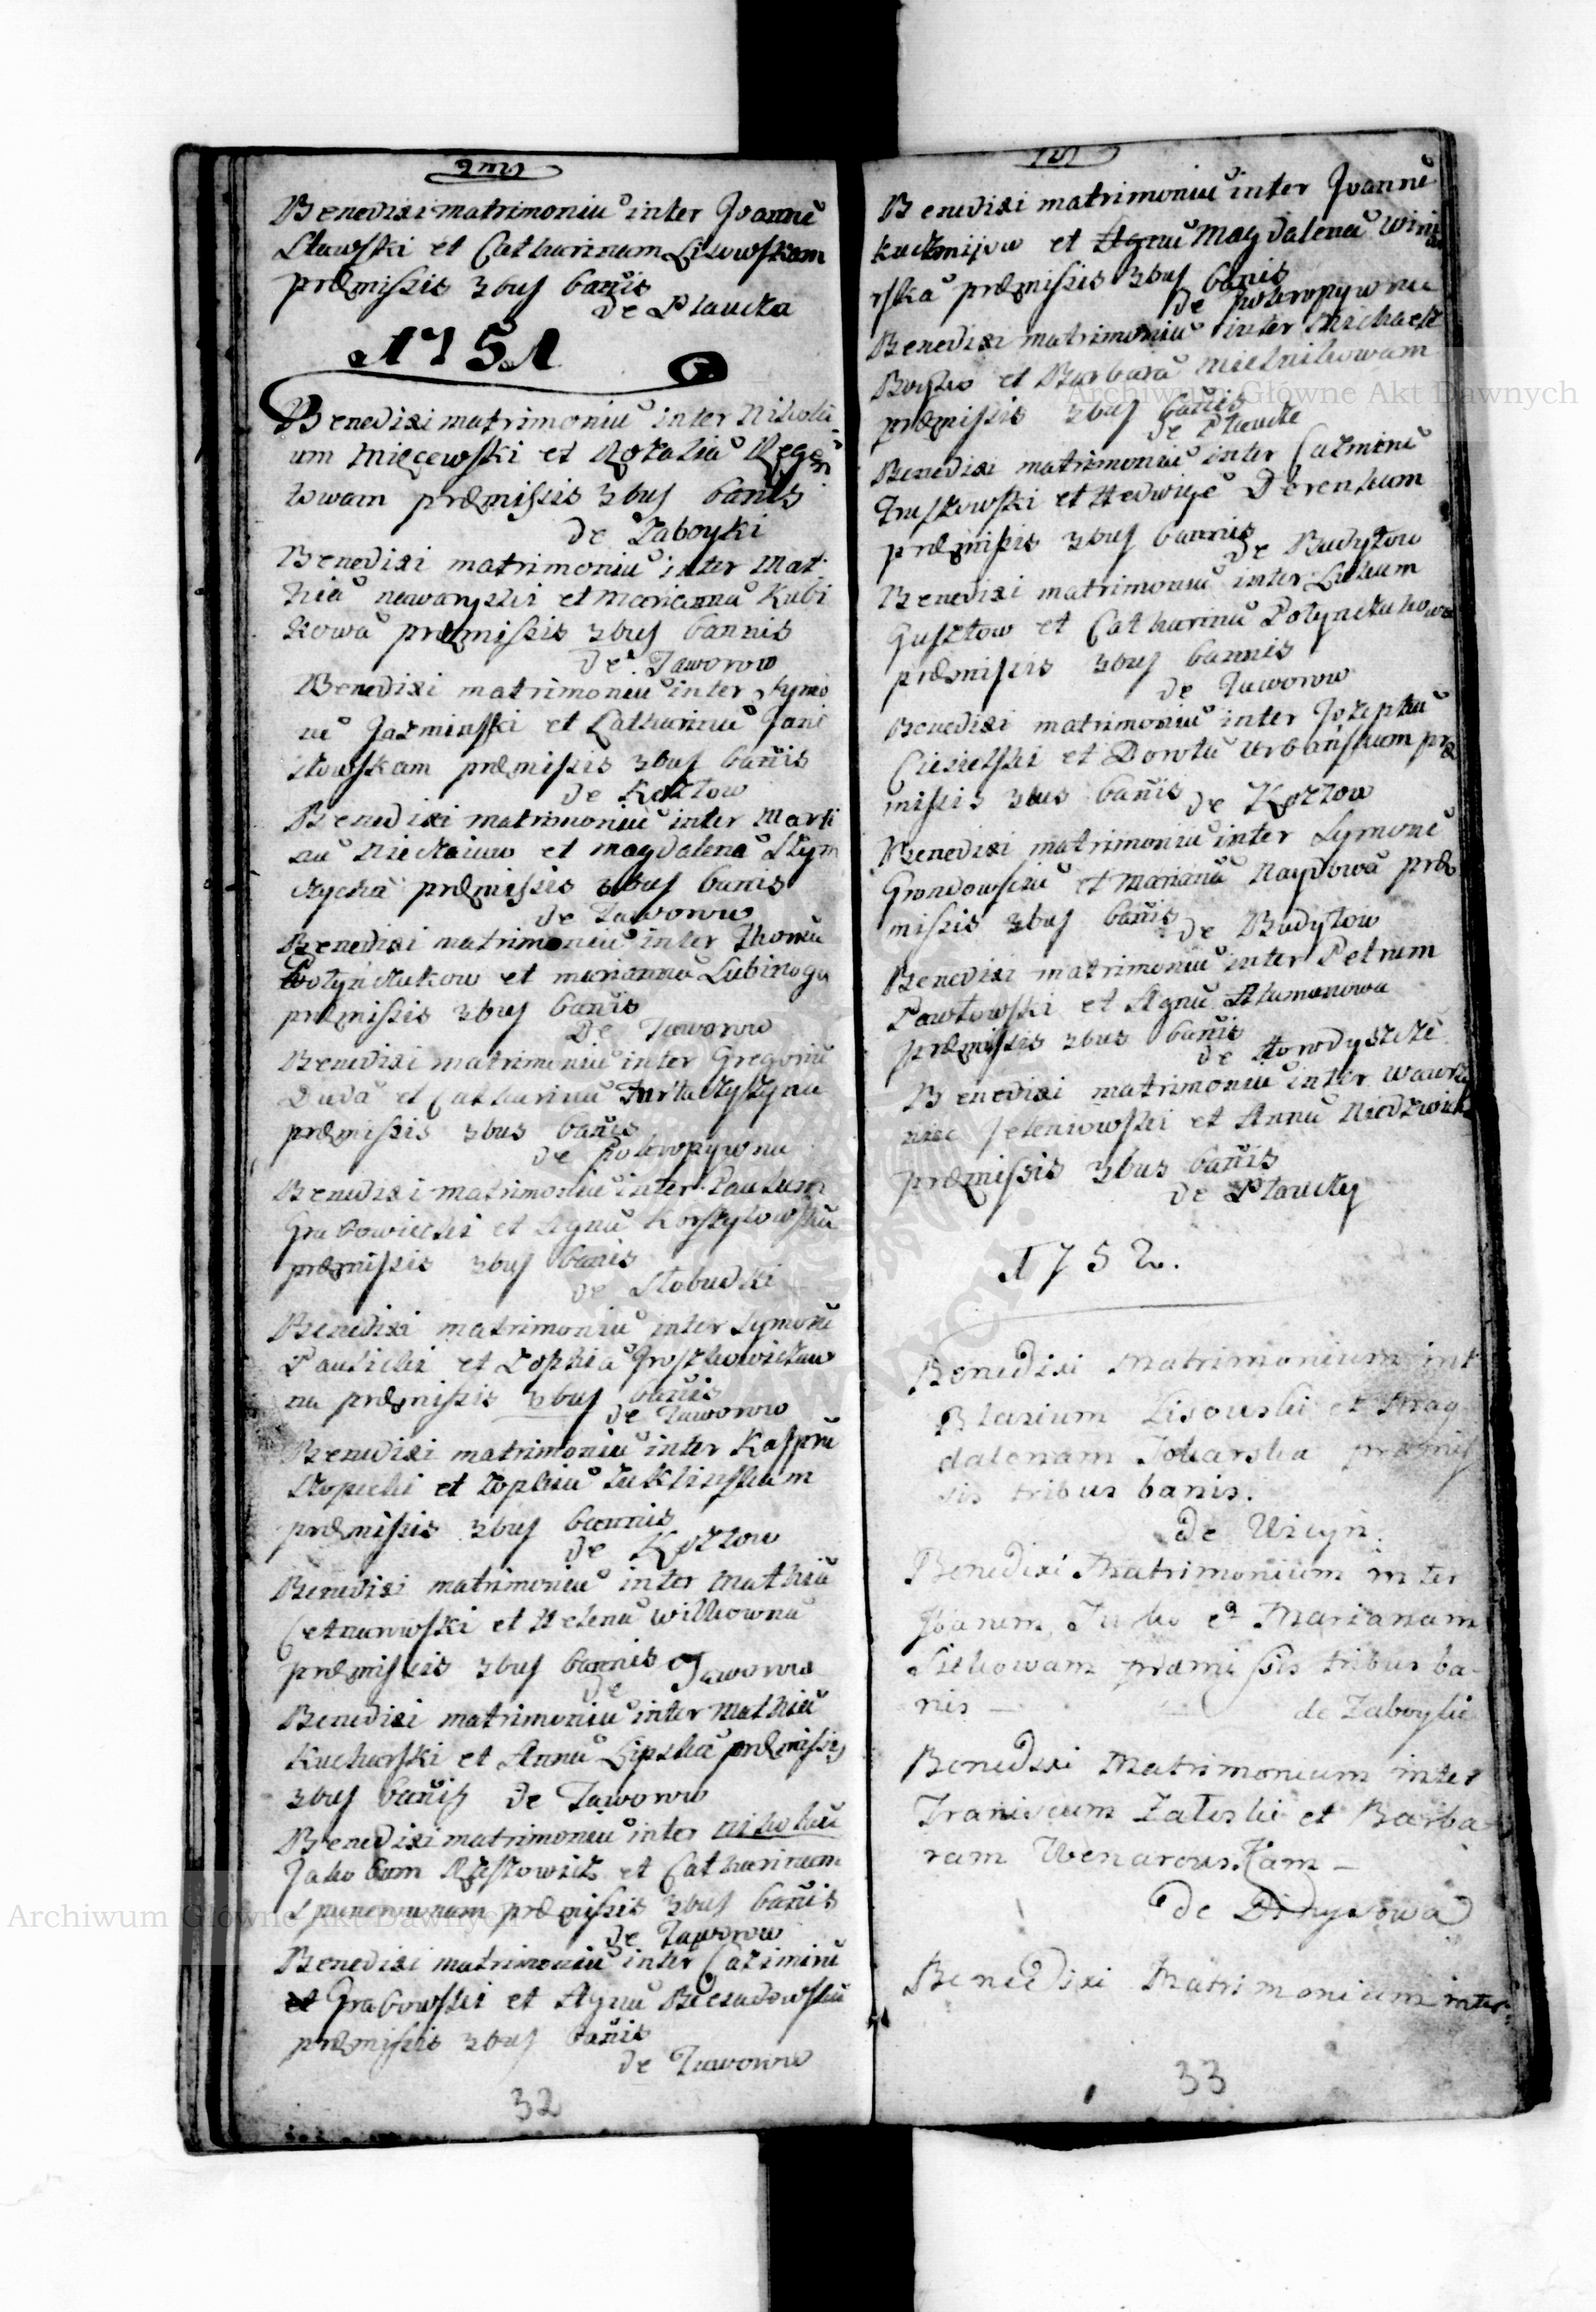 Benedixi matrimoniũ inter Joannẽ
Sławski et Catharinam Lisowskam
præmissis 3bus bañis
de Płaucza
1751
Benedixi matrimoniũ inter Nikola
um Mięcewski et Rozaliã Regen
towam præmissis 3bus banis
de Zaboyki
Benedixi matrimoniũ inter Mat
hiã nawaryski et Mariannã Kubi
kowã præmissis 3bus bannis
de Jaworow
Benedixi matrimoniũ inter Symo
nẽ Jazminski et Catharinã Jani
stowskam præmissis 3bus bañis
de Kozłow
Benedixi matrimoniũ inter Marti
nũ et Magdalenã
præmissis 3bus banis
de Jaworow
Benedixi matrimoniũ inter Thomã
Połynczukow et mariannã Lubinoga
præmissis 3bus bañis
De Jaworow
Benedixi matrimoniũ inter Gregoriũ
Dudã et Catharinã
præmissis 3bus bañis
de Pokropywna
Benedixi matrimoniũ inter Paulum
Grabowiecki et Agnã
præmissis 3bus banis
de Słobudki
Benedixi matrimoniũ inter Symonẽ
Pausicki et Zophiã
na præmissis 3bus bañis
de Jaworow
Benedixi matrimoniũ inter Kasprũ
et Zophiã Zuklinskam
præmissis 3bus bannis
de Kozłow
Benedixi matrimoniũ inter Mathiã
Cetnarowski et Helenã Wilkownã
præmissis 3bus bannis
de Jaworow
Benedixi matrimoniũ inter Mathiã
Kucharski et Annã Lipskã præmissis
3bus bañis de Jaworow
Benedixi matrimoniũ inter
Jakobum et Catharinam
præmissis 3bus bañis
de Jaworow
Benedixi matrimoniũ inter Cazimirũ
et Grabowski et Agnã Biesadowskã
præmissis 3bus bañis
de Jaworow
32
Benedixi matrimoniũ inter Joannẽ
Kuzmijow et Agnã Magdalenã Winia
rskã præmissis 3bus banis
de Pokropywna
Benedixi matrimoniũ inter Michaelẽ
Boyko et Barbarã Mielnikowam
præmissis 3bus bañis
de Płaucze
Benedixi matrimoniũ inter Cazmirũ
Truszkowski et Hedwigẽ Derenkam
præmissis 3bus bannis
de Budyłow
Benedixi matrimoniũ inter Lukam
Guszłow et Catharinã Połynczukowa
præmissis 3bus bannis
de Jaworow
Benedixi matrimoniũ inter Jozephũ
Ciesielski et Dorotã Urbańskam præ
missis 3bus bañis de Kozłow
Benedixi matrimoniũ inter Symonẽ
et Marianã Naydowã præ
missis 3bus bañis de Budyłow
Benedixi matrimoniũ inter Petrum
Pawłowski et Agnũ Atamanowa
præmissis 3bus bañis
de Horodyszcze
Benedixi matrimoniũ inter Wawrzy
niec Jeleniowski et Annã
præmissis 3bus bañis
de Płauczy
1752.
Benedixi Matrimonium int
Blasium Lisouski et Mag
dalenam Tokarska præmis
sis tribus banis.
de Uscyn.
Benedixi Matrimonium inter
Joanem Turko et Marianam
præmissis tribus ba-
nis — de Zaboyki
Benedixi Matrimonium inter
Franiscum Zaleski et Barba
ram Wenarouskam —
de
Benedixi Matrimonium inter
33
Archiwum Główne Akt Dawnych
Archiwum Główne Akt Dawnych